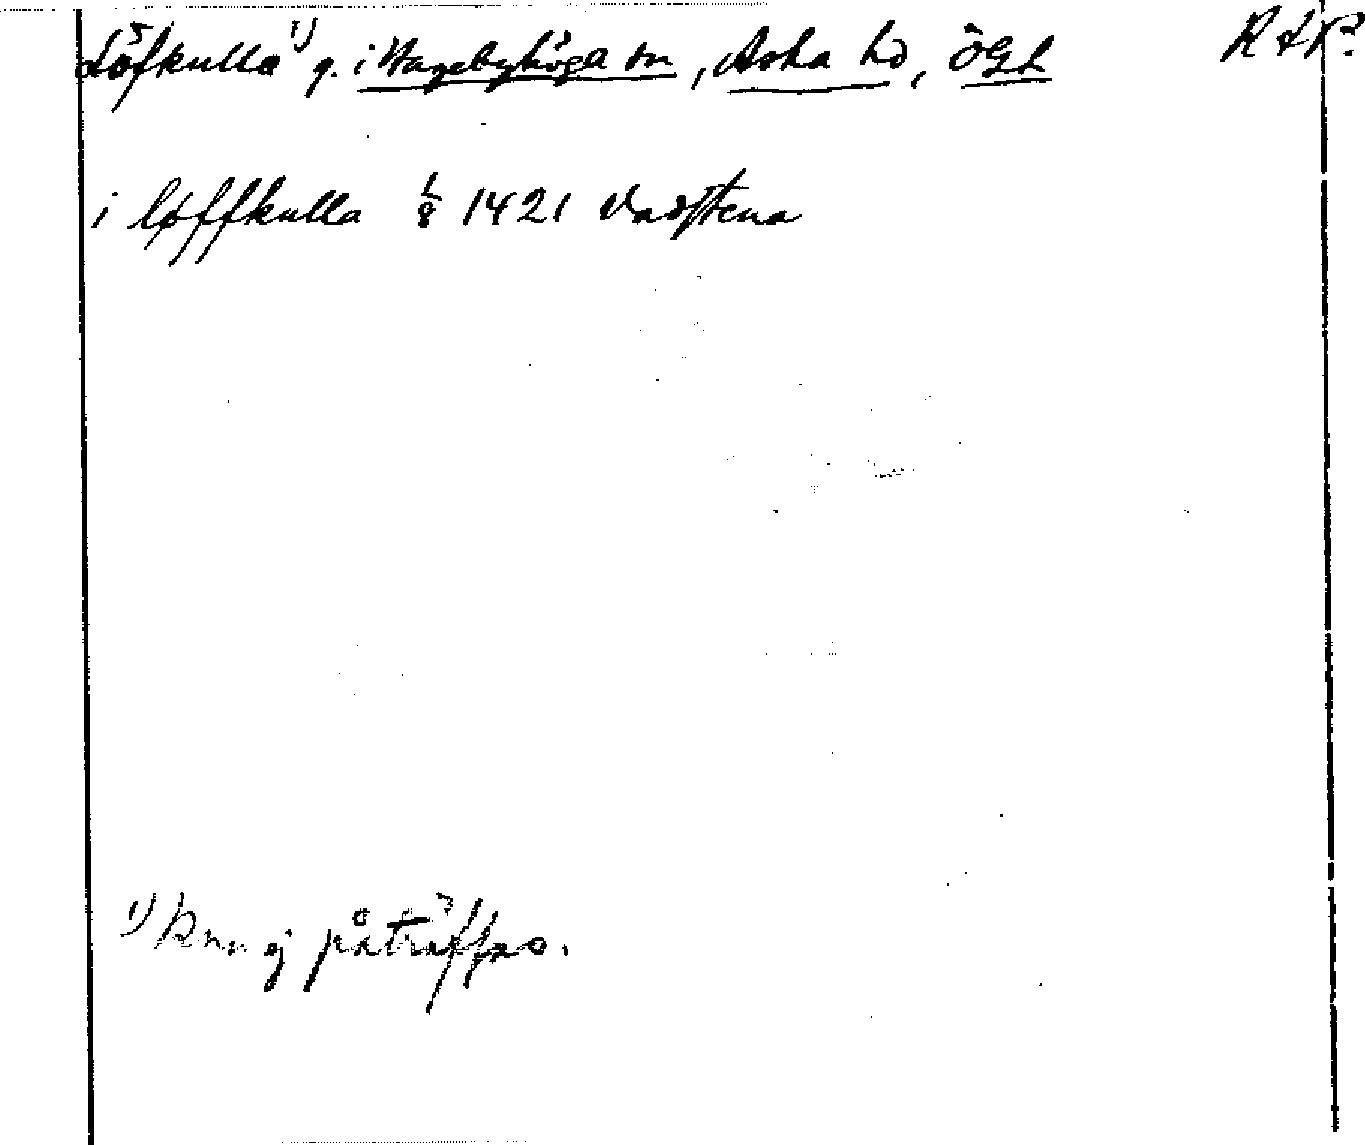 Löfkulla ¹⁾ g. i Hagebyhöga sn, Aska hd, Ögl RAP.
i løffkulla 1/8 1421 Vadstena
¹⁾ kan ej påträffas.